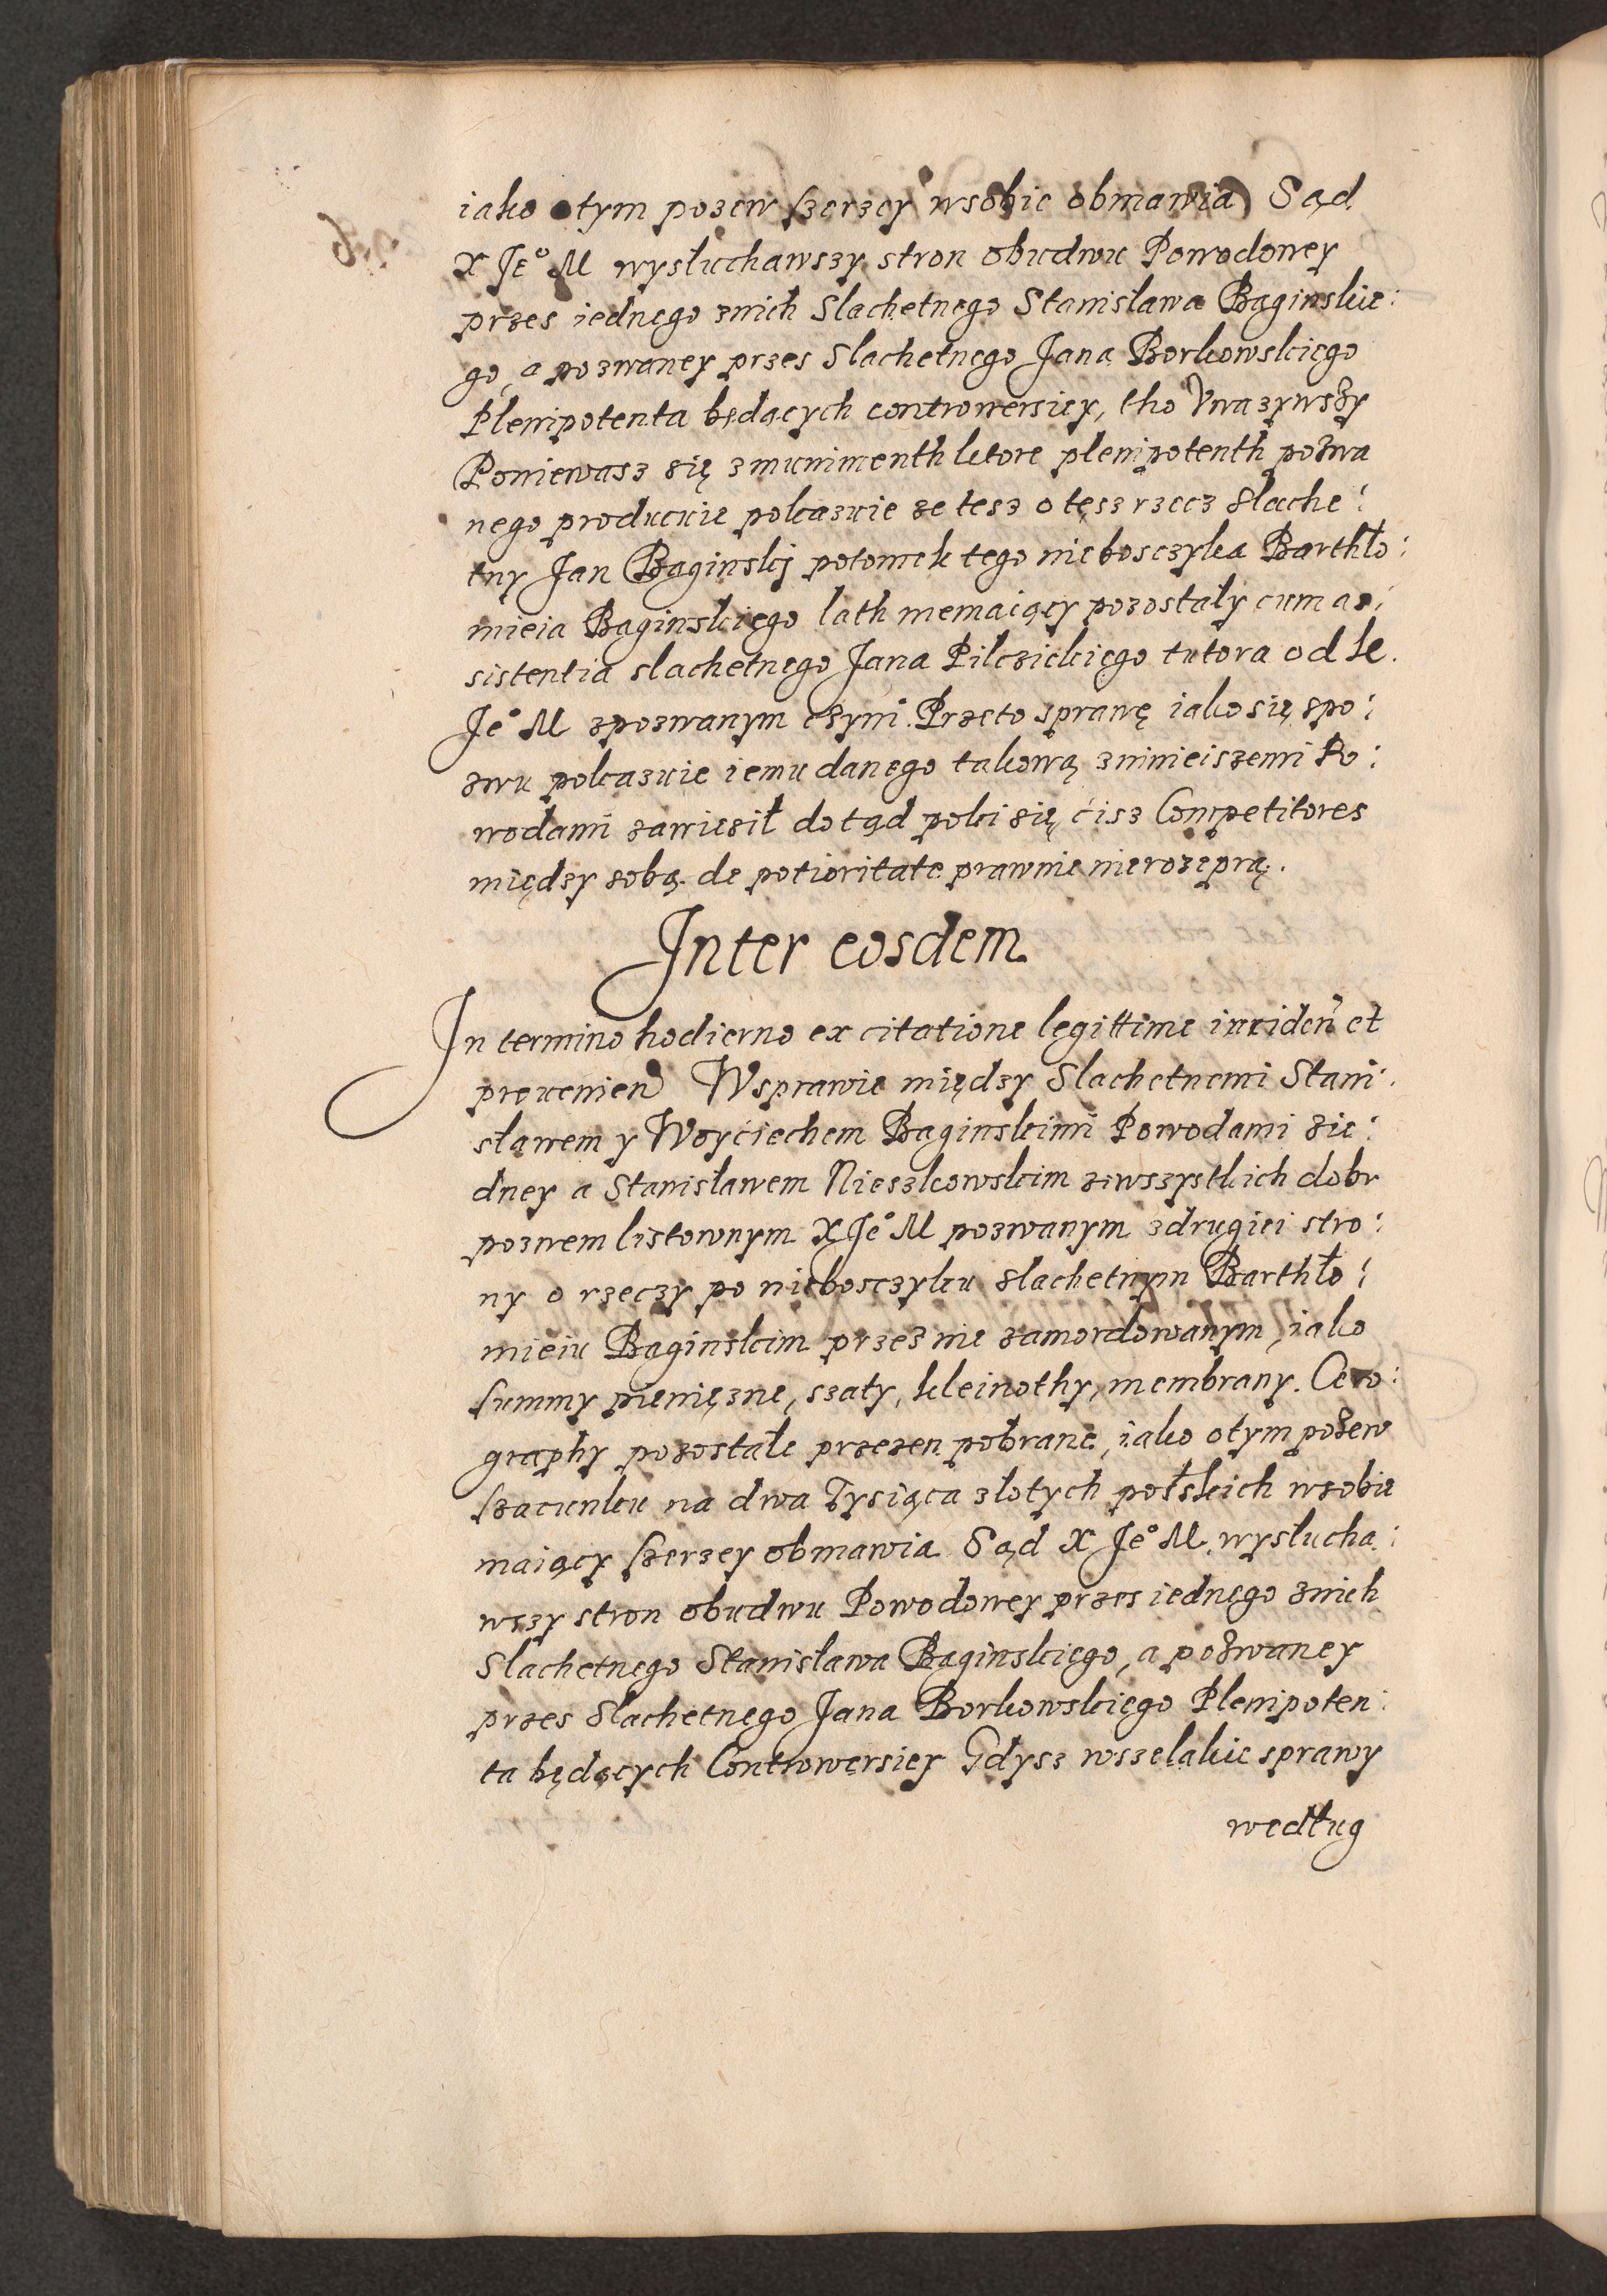 iako otym pozew szerzey wsobie obmawia Sąd
X Je° M wysłuchawszy stron obudwu Powodowey
przes iednego znich Slachetnego Stanisława Baginskie:
go, a pozwaney przes Slachetnego Jana Borkowskiego
Plenipotenta będących controwersiey, tho Vwazywszy
Poniewasz się zmunimenth ktore plenipotenth pozwa
nego producuie pokazuie ze tesz o tęsz rzecz slache:
tny Jan Baginskj potomek tego nieboszczyka Barthło:
mieia Baginskiego lath niemaiący pozostały cum as:
sistentia slachetnego Jana Pilczickiego tutora od X.
Je° M zpozwanym czyni. Przeto sprawę iako się zpo:
zwu pokazuie iemu danego takową zninieiszemi Po:
wodami zawiesił dotąd poki się ćisz Competitores
między sobą de potioritate prawnie nierozeprą.
Inter eosdem
In termino hodierno ex citatione legittime inciden et
prouenien Wsprawie między Slachetnemi Stani:
sławem y Woyćiechem Baginskimi Powodami zie:
dney a Stanisławem Nieszkowskim zewszystkich dobr
pozwem listownym X Je° M pozwanym zdrugiei stro:
ny o rzeczy po nieboszczyku slachetnym Barthło:
mieiu Baginskim przesznie zamordowanym, iako
summy pieniężne, szaty, kleinothy, membrany. Cero:
graphy pozostałe przezen pobrane, iako otym pozew
szacunku na dwa Tysiąca złotych połskich wsobie
maiący szerzey obmawia Sąd X Je° M. wysłucha:
wszy stron obudwu Powodowey przes iednego znich
Slachetnego Stanisława Baginskiego, a pozwaney
przes Slachetnego Jana Borkowskiego Plenipoten:
ta będących Controwersiey Gdysz wszelakie sprawy
według